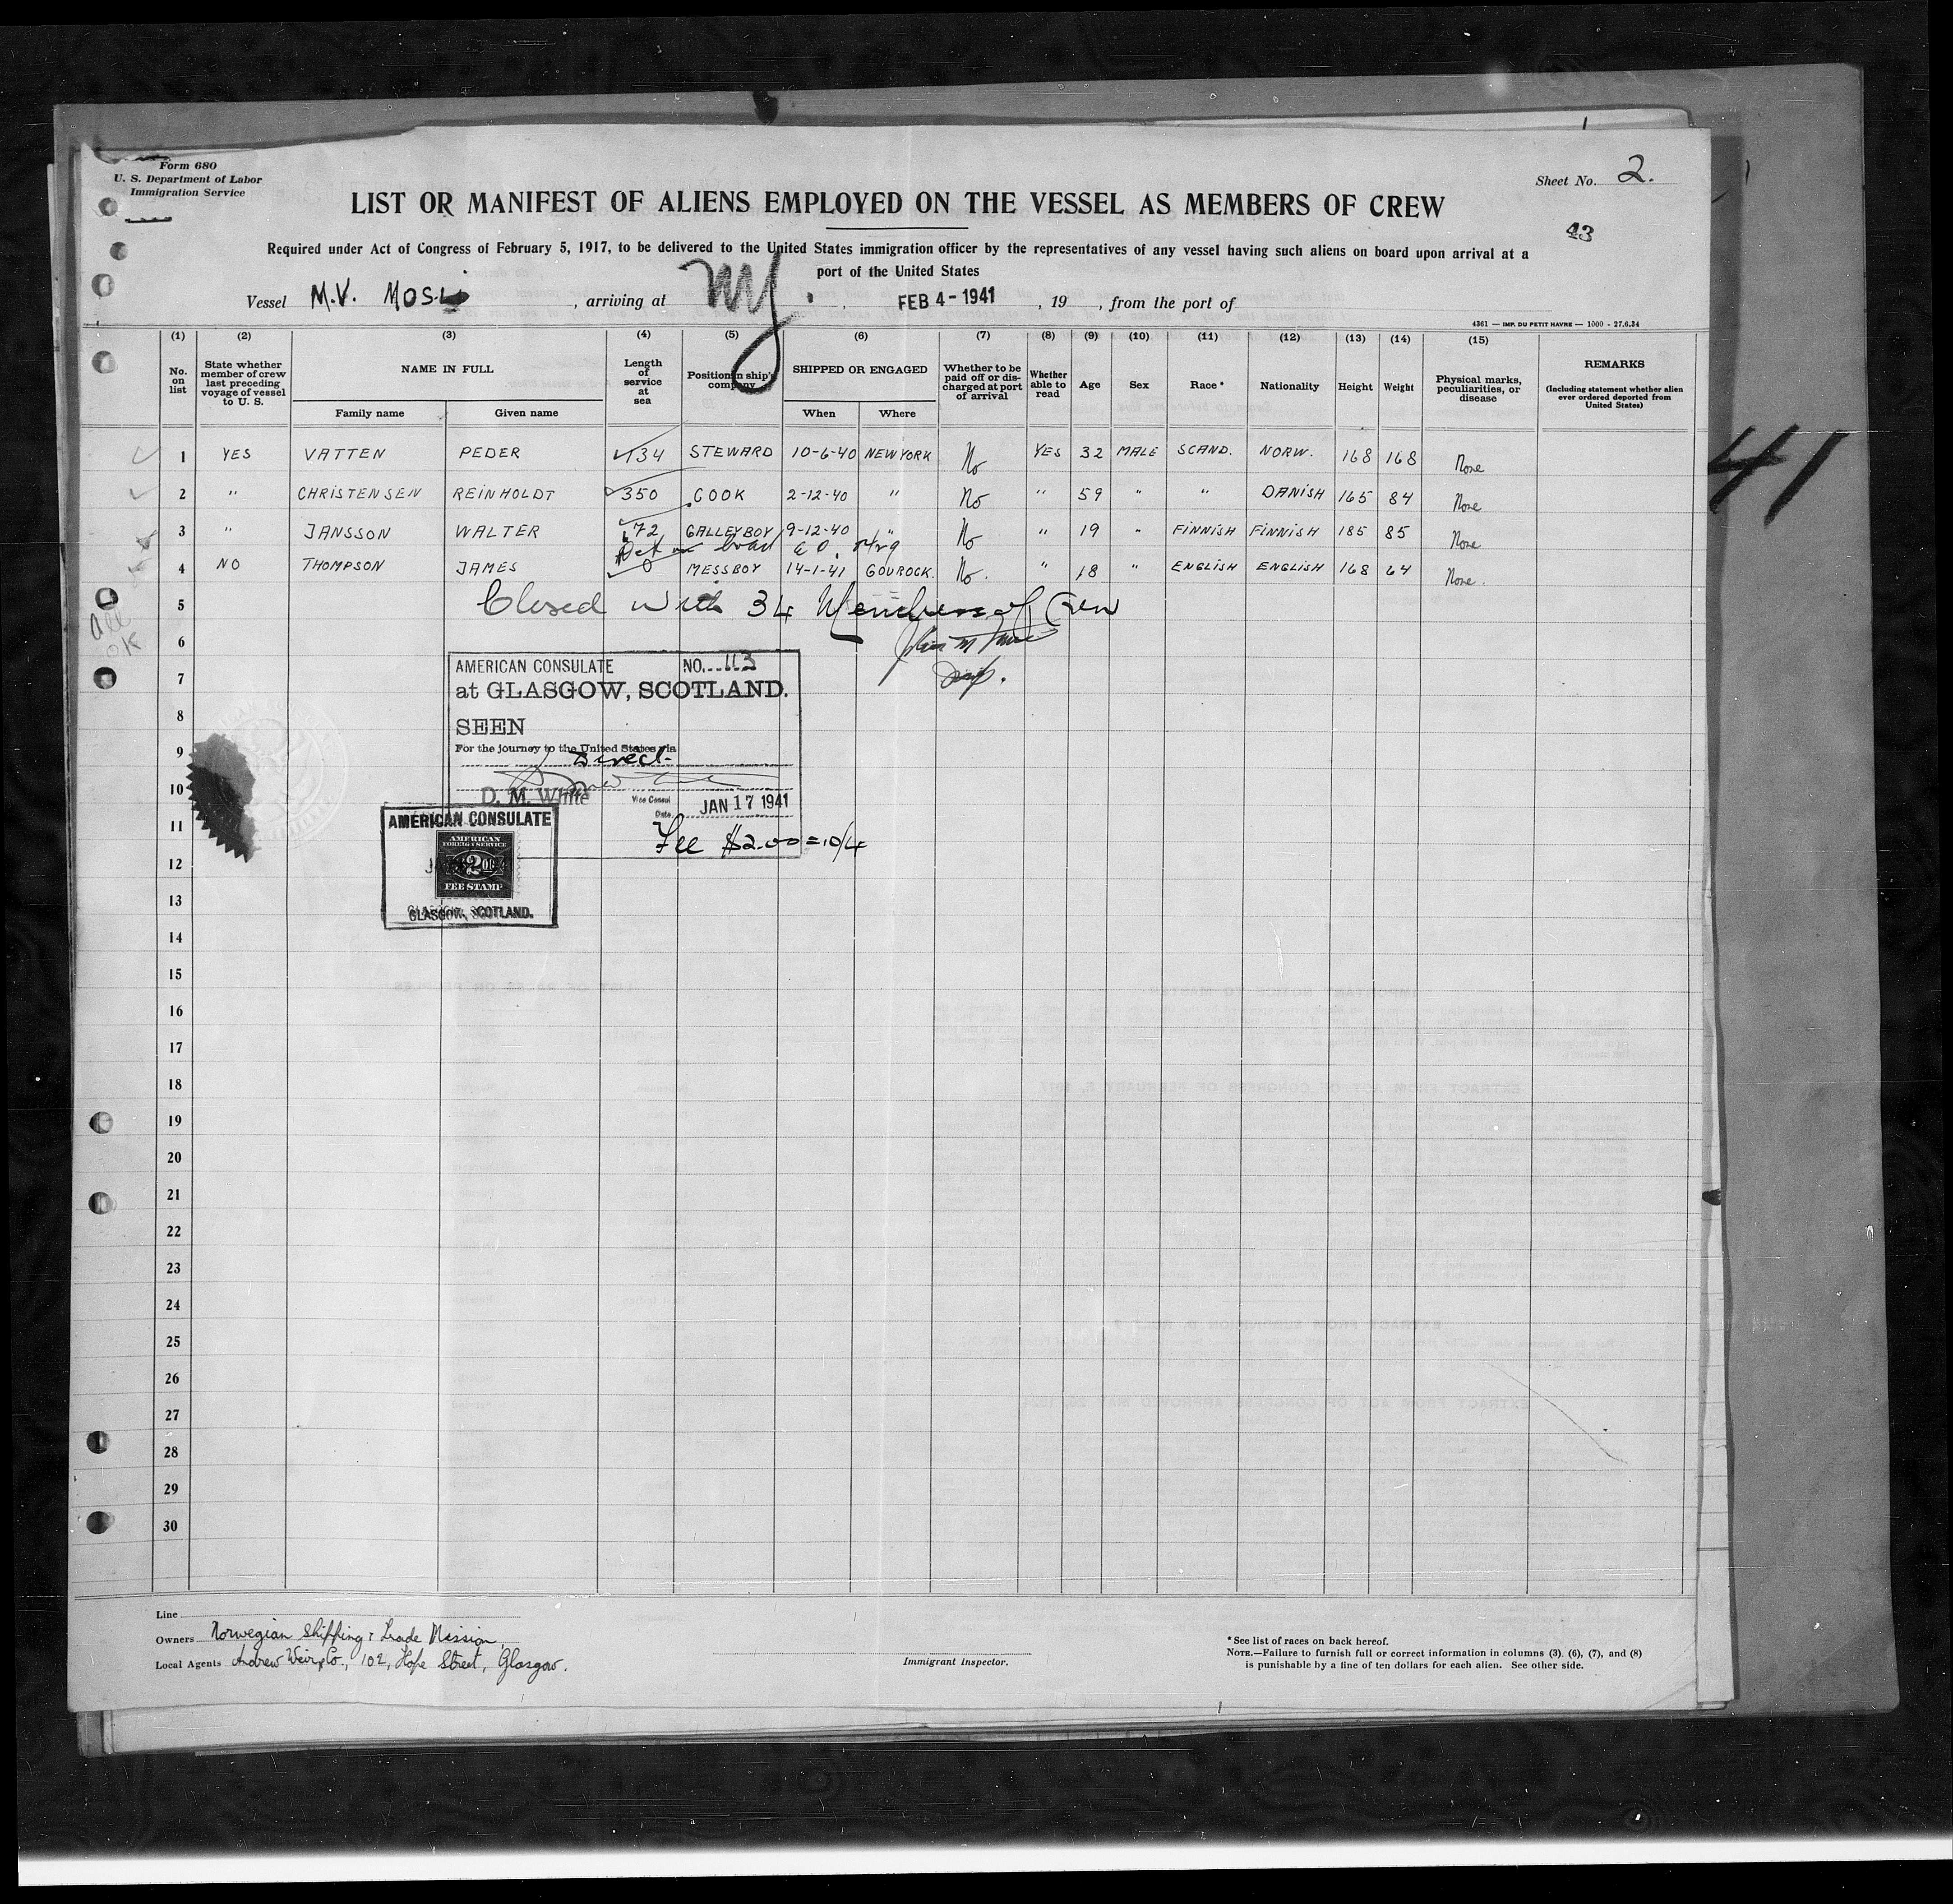 Form 680
U. S. Department of Labor
Immigration Service
Sheet No. 2.
LIST OR MANIFEST OF ALIENS EMPLOYED ON THE VESSEL AS MEMBERS OF CREW
43
Required under Act of Congress of February 5, 1917, to be delivered to the United States immigration officer by the representatives of any vessel having such aliens on board upon arrival at a
port of the United States
Vessel M.V. MOSLI, arriving at NY., FEB 4-1941, 19 , from the port of
4361 — IMP. DU PETIT HAVRE — 1000 - 27.6.34
(1) (2) (3) (4) (5) (6) (7) (8) (9) (10) (11) (12) (13) (14) (15)
No. on list
State whether member of crew last preceding voyage of vessel to U. S.
NAME IN FULL
Family name
Given name
Length of service at sea
Position in ship's company
SHIPPED OR ENGAGED
When
Where
Whether to be paid off or discharged at port of arrival
Whether able to read
Age
Sex
Race*
Nationality
Height
Weight
Physical marks, peculiarities, or disease
REMARKS
(Including statement whether alien ever ordered deported from United States)
1 YES VATTEN PEDER 134 STEWARD 10-6-40 NEWYORK No YES 32 MALE SCAND. NORW. 168 168 None
2 " CHRISTENSEN REINHOLDT 350 COOK 2-12-40 " No " 59 " " DANISH 165 84 None
3 " JANSSON WALTER 72 GALLEYBOY 9-12-40 " No " 19 " FINNISH FINNISH 185 85 None
4 NO THOMPSON JAMES 0 MESSBOY 14-1-41 GOUROCK. No. " 18 " ENGLISH ENGLISH 168 64 None.
41
5
Closed with 34 Members of Crew
all
OK
6
7
8
9
10
11
12
13
14
15
16
17
18
19
20
21
22
23
24
25
26
27
28
29
30
AMERICAN CONSULATE NO. 113
at GLASGOW, SCOTLAND.
SEEN
For the journey to the United States via
Direct
D. M. White
Vice Consul
Date JAN 17 1941
Fee $2.00=10/4
AMERICAN CONSULATE
AMERICAN
FOREIGN SERVICE
2
FEE STAMP
GLASGOW, SCOTLAND.
Line
Owners Norwegian Shipping & Trade Mission,
Local Agents Andrew Weir & Co., 102, Hope Street, Glasgow.
Immigrant Inspector.
* See list of races on back hereof.
NOTE.—Failure to furnish full or correct information in columns (3), (6), (7), and (8)
is punishable by a fine of ten dollars for each alien. See other side.